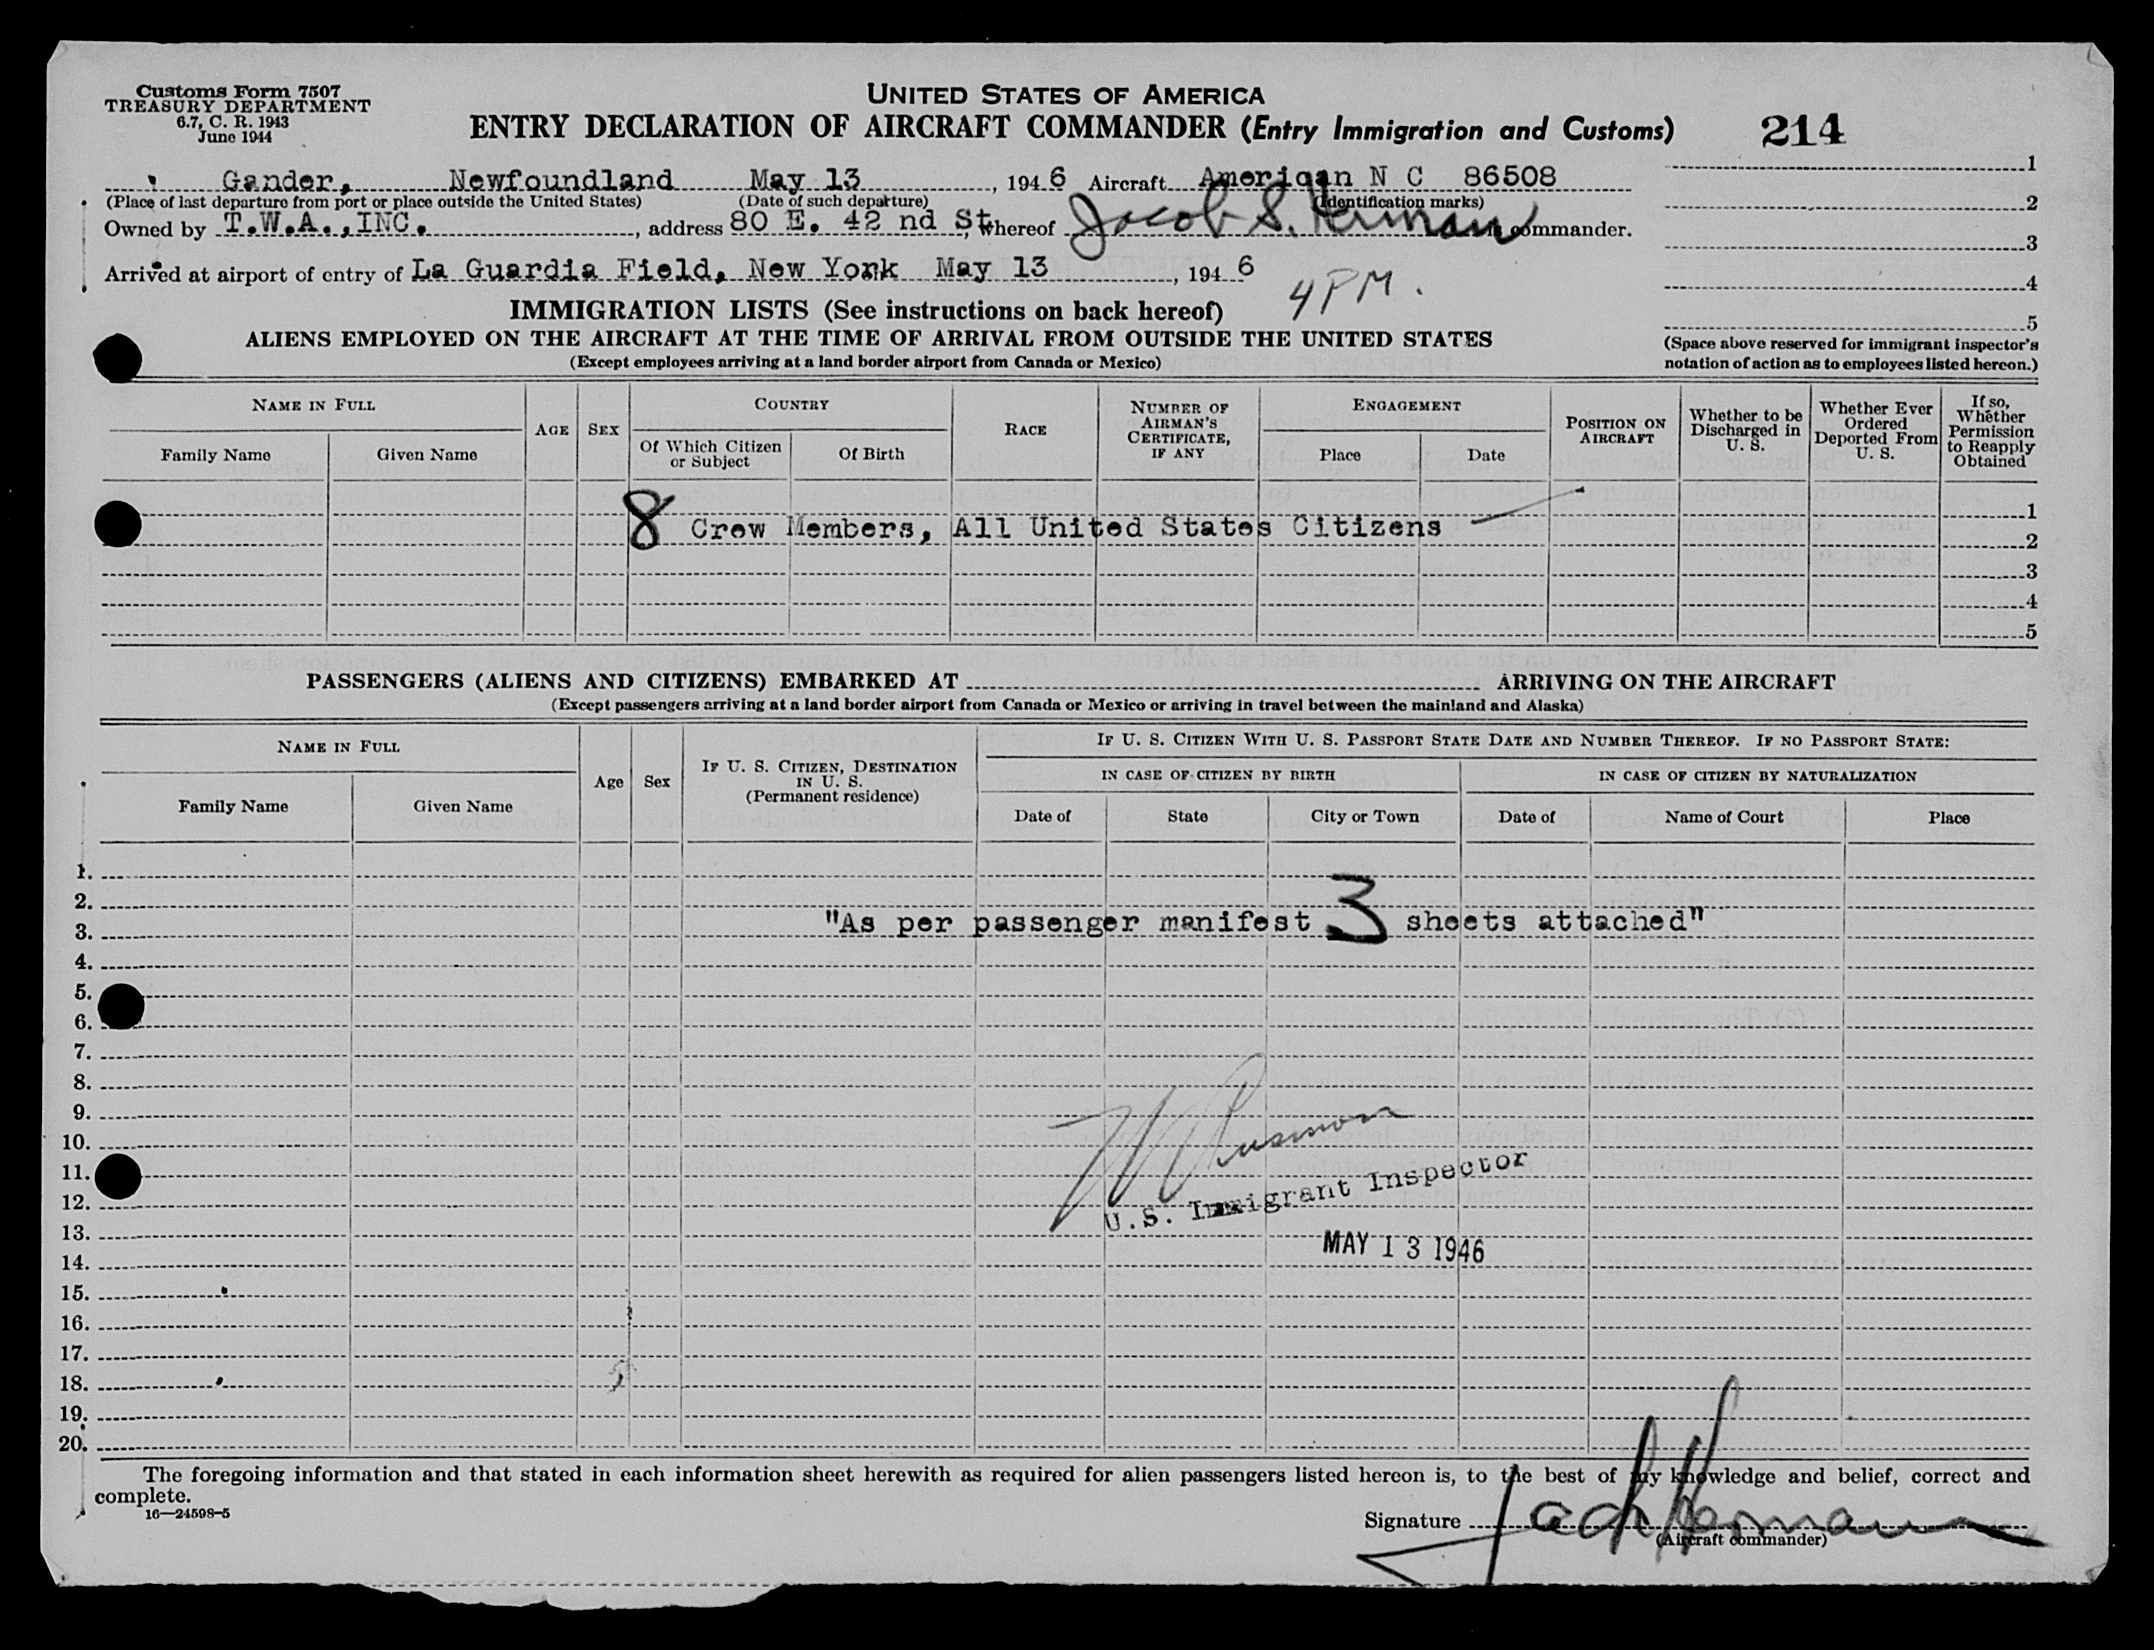 Customs Form 7507
TREASURY DEPARTMENT
6.7, C. R. 1943
June 1944
UNITED STATES OF AMERICA
ENTRY DECLARATION OF AIRCRAFT COMMANDER (Entry Immigration and Customs)
214
Gander, Newfoundland May 13, 1946 Aircraft American N C 86508
(Place of last departure from port or place outside the United States) (Date of such departure) (Identification marks)
Owned by T.W.A.,INC., address 80 E. 42 nd St, whereof Jacob S. Herman is commander.
Arrived at airport of entry of La Guardia Field, New York May 13, 1946
4 PM.
1
2
3
4
5
(Space above reserved for immigrant inspector's
notation of action as to employees listed hereon.)
IMMIGRATION LISTS (See instructions on back hereof)
ALIENS EMPLOYED ON THE AIRCRAFT AT THE TIME OF ARRIVAL FROM OUTSIDE THE UNITED STATES
(Except employees arriving at a land border airport from Canada or Mexico)
NAME IN FULL
Family Name
Given Name
AGE
SEX
COUNTRY
Of Which Citizen
or Subject
Of Birth
RACE
NUMBER OF
AIRMAN'S
CERTIFICATE,
IF ANY
ENGAGEMENT
Place
Date
POSITION ON
AIRCRAFT
Whether to be
Discharged in
U. S.
Whether Ever
Ordered
Deported From
U. S.
If so,
Whether
Permission
to Reapply
Obtained
8 Crew Members, All United States Citizens
1
2
3
4
5
PASSENGERS (ALIENS AND CITIZENS) EMBARKED AT ARRIVING ON THE AIRCRAFT
(Except passengers arriving at a land border airport from Canada or Mexico or arriving in travel between the mainland and Alaska)
NAME IN FULL
Family Name
Given Name
Age
Sex
IF U. S. CITIZEN, DESTINATION
IN U. S.
(Permanent residence)
IF U. S. CITIZEN WITH U. S. PASSPORT STATE DATE AND NUMBER THEREOF. IF NO PASSPORT STATE:
IN CASE OF CITIZEN BY BIRTH
IN CASE OF CITIZEN BY NATURALIZATION
Date of
State
City or Town
Date of
Name of Court
Place
1.
2.
3. "As per passenger manifest 3 sheets attached"
4.
5.
6.
7.
8.
9.
10.
11.
12.
13.
14.
15.
16.
17.
18.
19.
20.
U.S. Immigrant Inspector
MAY 13 1946
The foregoing information and that stated in each information sheet herewith as required for alien passengers listed hereon is, to the best of my knowledge and belief, correct and
complete.
16—24598-5
Signature Jack Herman
(Aircraft commander)